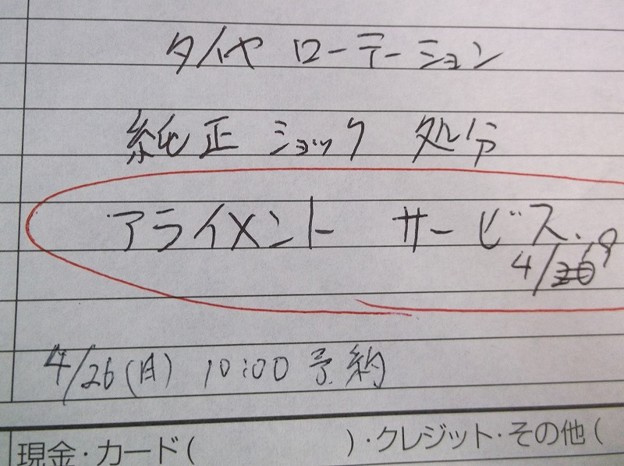 タイヤ ローテーション
純正 ショック 処分
アライメント サービス.
4/
4/26(月) 10:00 予約
現金・カード( )・クレジット・その他(